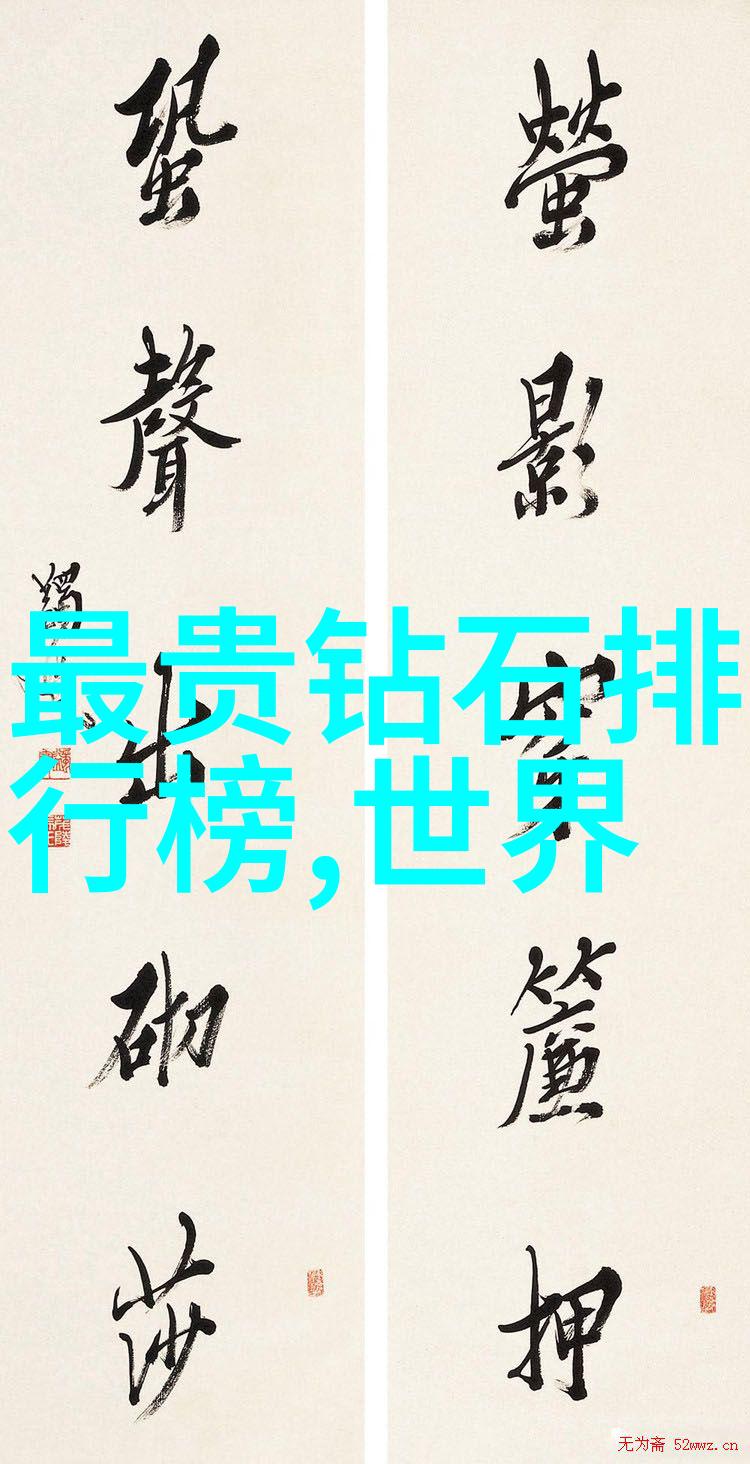 螢影穿簾押
蛩聲出砌莎
最贵钻石排
行榜,世界
无为斋 52wwz.cn